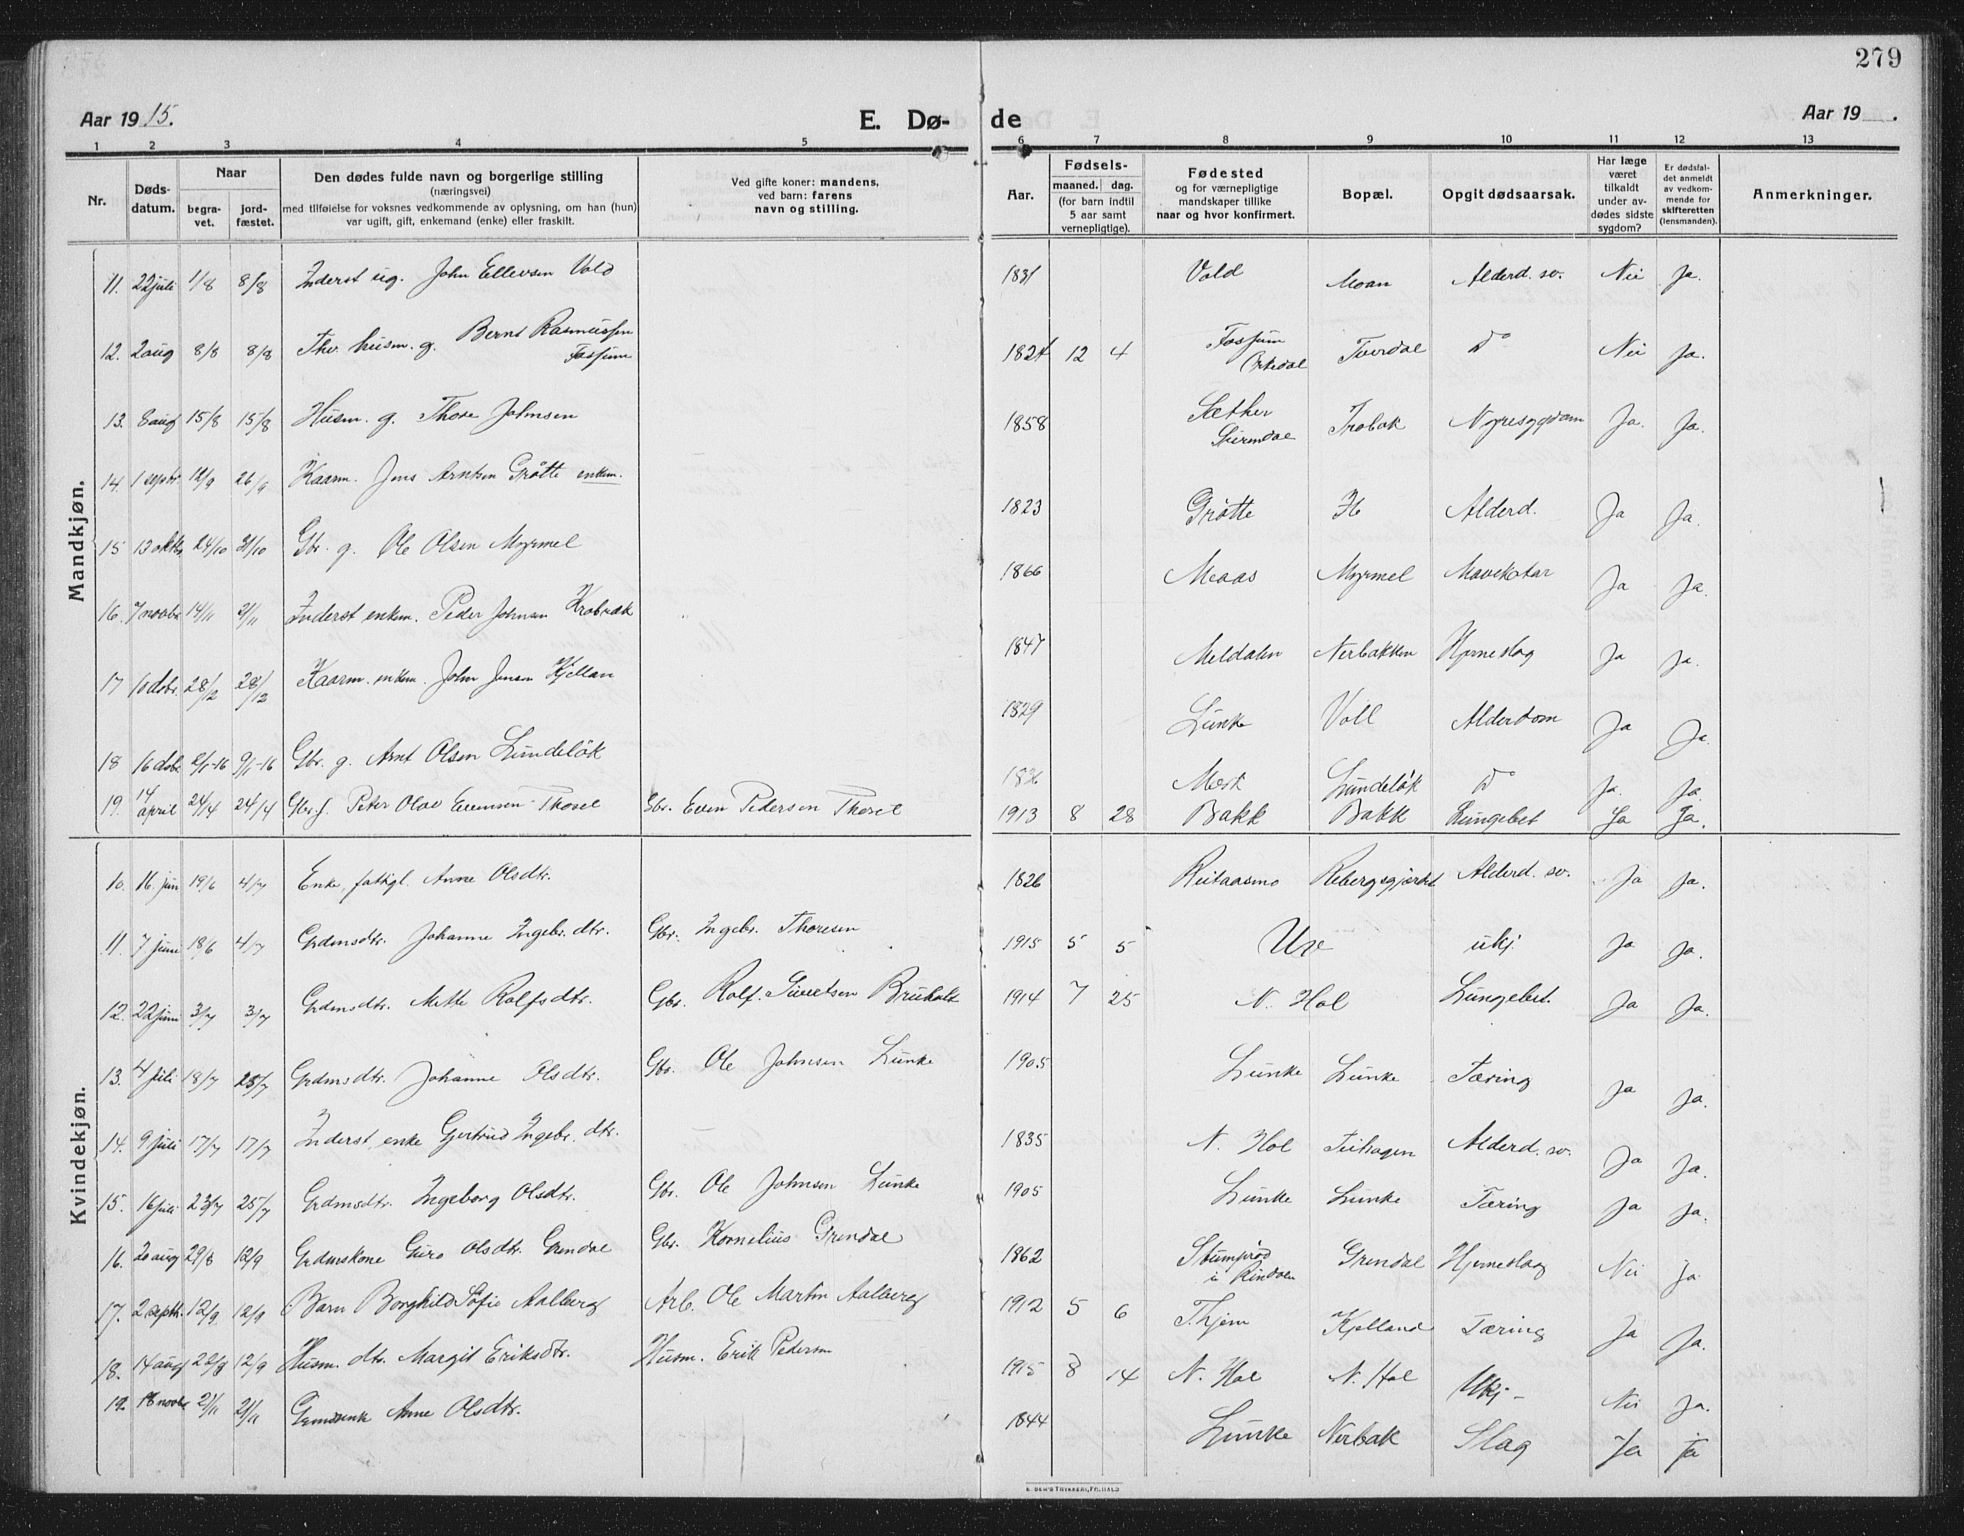 279
Aar 1915.
E. Dø- de
Aar 19 .
1 2 3 4 5 6 7 8 9 10 11 12 13
Nr.
Døds-
datum.
Naar
begra-
vet.
jord-
fæstet.
Den dødes fulde navn og borgerlige stilling
(næringsvei)
med tilføielse for voksnes vedkommende av oplysning, om han (hun)
var ugift, gift, enkemand (enke) eller fraskilt.
Ved gifte koner: mandens,
ved barn: farens
navn og stilling.
Aar.
Fødsels-
maaned. dag.
(for barn indtil
5 aar samt
vernepligtige).
Fødested
og for værnepligtige
mandskaper tillike
naar og hvor konfirmert.
Bopæl.
Opgit dødsaarsak.
Har læge
været
tilkaldt
under av-
dødes sidste
sygdom?
Er dødsfal-
det anmeldt
av vedkom-
mende for
skifteretten
(lensmanden).
Anmerkninger.
Mandkjøn.
11. 22 juli 1/8 8/8 Inderst ug. John Ellevsen Vold 1831 Vold Moan Alderd. sv. Nei Ja.
12. 2 aug 8/8 8/8 Fhv. husm. g. Bernt Rasmussen Fossum 1824 12 4 Fossum Orkedal Toverdal Do Nei Ja.
13. 8 aug 15/8 15/8 Husm. g. Thore Johnsen 1858 Sæther Surendal Trobak Nyresygdom Ja. Ja.
14. 1 septbr 12/9 26/9 Kaarm. Jens Arntsen Grøtte enkem. 1823 Grøtte Alderd. Ja Ja.
15 13 oktbr. 24/10 31/10 Gbr. g. Ole Olsen Myrmel 1866 Moas Myrmel Mavekatar Ja Ja.
16. 7 novbr 14/11 21/11 Inderst enkem. Peder Johnsen Krobæk 1847 Meldalen Nerbakken Hjerneslag Ja Ja.
17 10 dsbr. 28/12 28/12 Kaarm. enkem. John Jensen Kjellan 1829 Lunke Voll Alderdom Ja Ja.
18 16 dsbr 2/1-16 9/1-16 Gbr. g. Arnt Olsen Lundeløk 1836 Mosk Lundeløk Do Ja. Ja.
19. 14 april 24/4 24/4 Gbr.s. Peter Olav Evensen Thorel Gbr. Even Pedersen Thorel 1913 8 28 Bakk Bakk Lungebet Ja Ja.
Kvindekjøn.
10. 16. jun 19/6 4/7 Enke, fattigl. Anne Olsdtr. 1826 Reitaasmo Rebergsgjerdet Alderd. sv. Ja Ja.
11. 7 juni 18/6 4/7 Grdmsdtr. Johanne Ingebr. dtr. Gbr. Ingebr. Thoresen 1915 5 5 ukj. Ja Ja.
12. 22 juni 3/7 3/7 Grdmsdtr. Mette Rolfsdtr. Gbr. Rolf. Sivertsen Bruholt 1914 7 25 N. Hol Lungebet. Ja Ja.
13. 4 juli 18/7 25/7 Grdmsdtr. Johanne Olsdtr. Gbr. Ole Johnsen Lunke 1905 Lunke Lunke Tæring Ja Ja.
14. 9 juli 17/7 17/7 Inderst, enke Gjertrud Ingebr. dtr. 1835 N. Hol Teihagen Alderd. sv. Ja Ja.
15. 16 juli 23/7 25/7 Grdmsdtr. Ingeborg Olsdtr. Gbr. Ole Johnsen Lunke 1905 Lunke Lunke Tæring Ja Ja.
16. 20 aug 29/8 12/9 Grdmskone Guro Olsdtr. Grendal Gbr. Kornelius Grendal 1862 Stumprød i Rindalen Grendal Hjerneslag Nei Ja
17. 2 septbr. 12/9 12/9 Barn Borghild Sofie Aalberg Arb. Ole Martin Aalberg 1912 5 6 Thjem Kjelland Tæring Ja Ja.
18. 14 aug 22/8 12/9 Husm. dtr. Margit Eriksdtr. Husm. Erik Pedersen 1915 8 14 N. Hol N. Hol Ukj - Nei Ja.
19. 18 novbr 21/11 21/11 Anne Olsdtr. 1844 Lunke Nerbak Slag Ja Ja
E. SEM'S TRYKKERI, FR.HALD